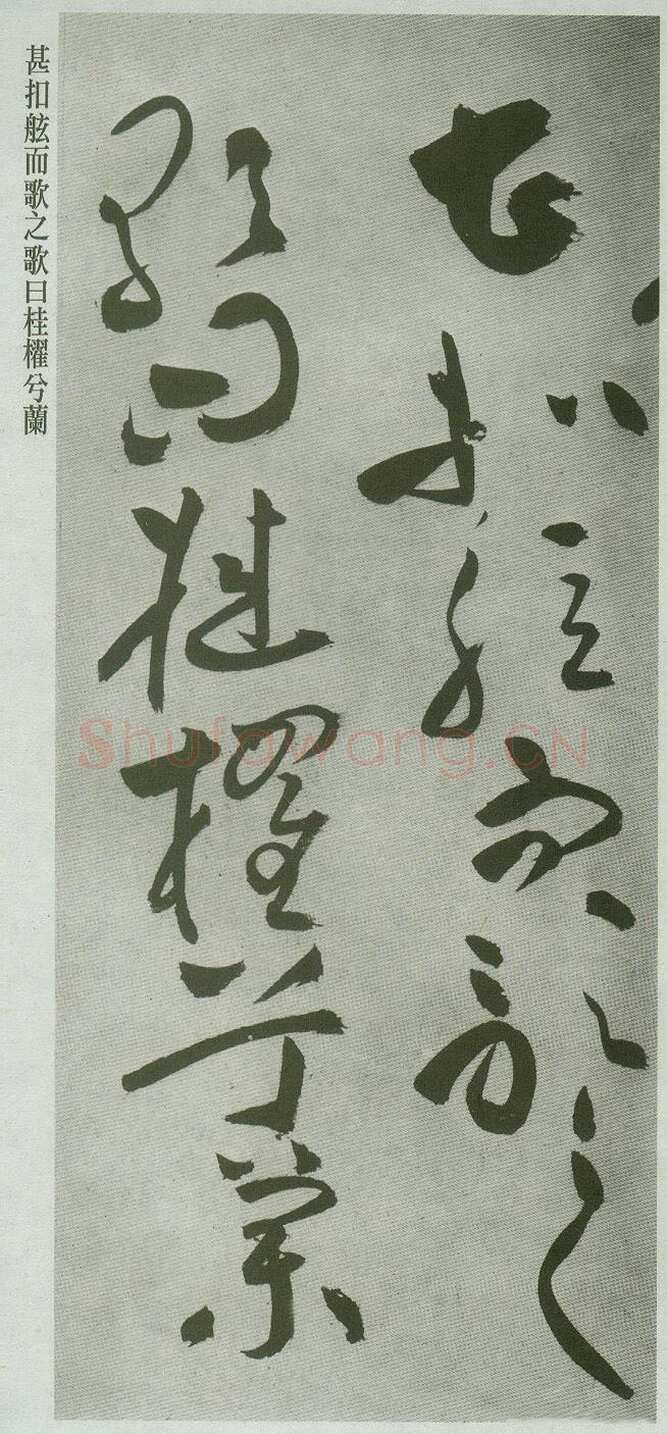 甚扣舷而歌之
歌曰桂櫂兮蘭
甚扣舷而歌之歌曰桂櫂兮蘭
Shufawang.CN